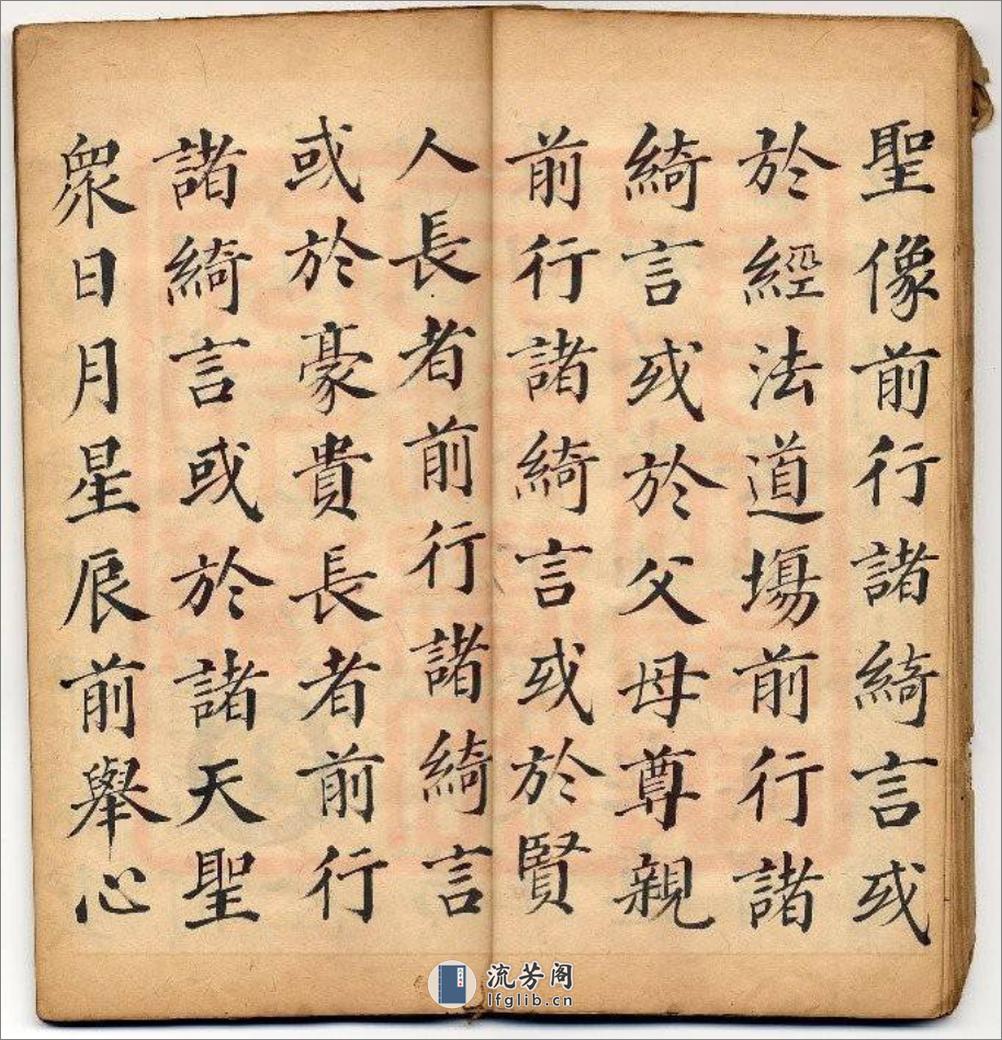 聖像前行諸綺言或
於經法道場前行諸
綺言或於父母尊親
前行諸綺言或於賢
人長者前行諸綺言
或於豪貴長者前行
諸綺言或於諸天聖
眾日月星辰前舉心
流芳阁
lfglib.cn